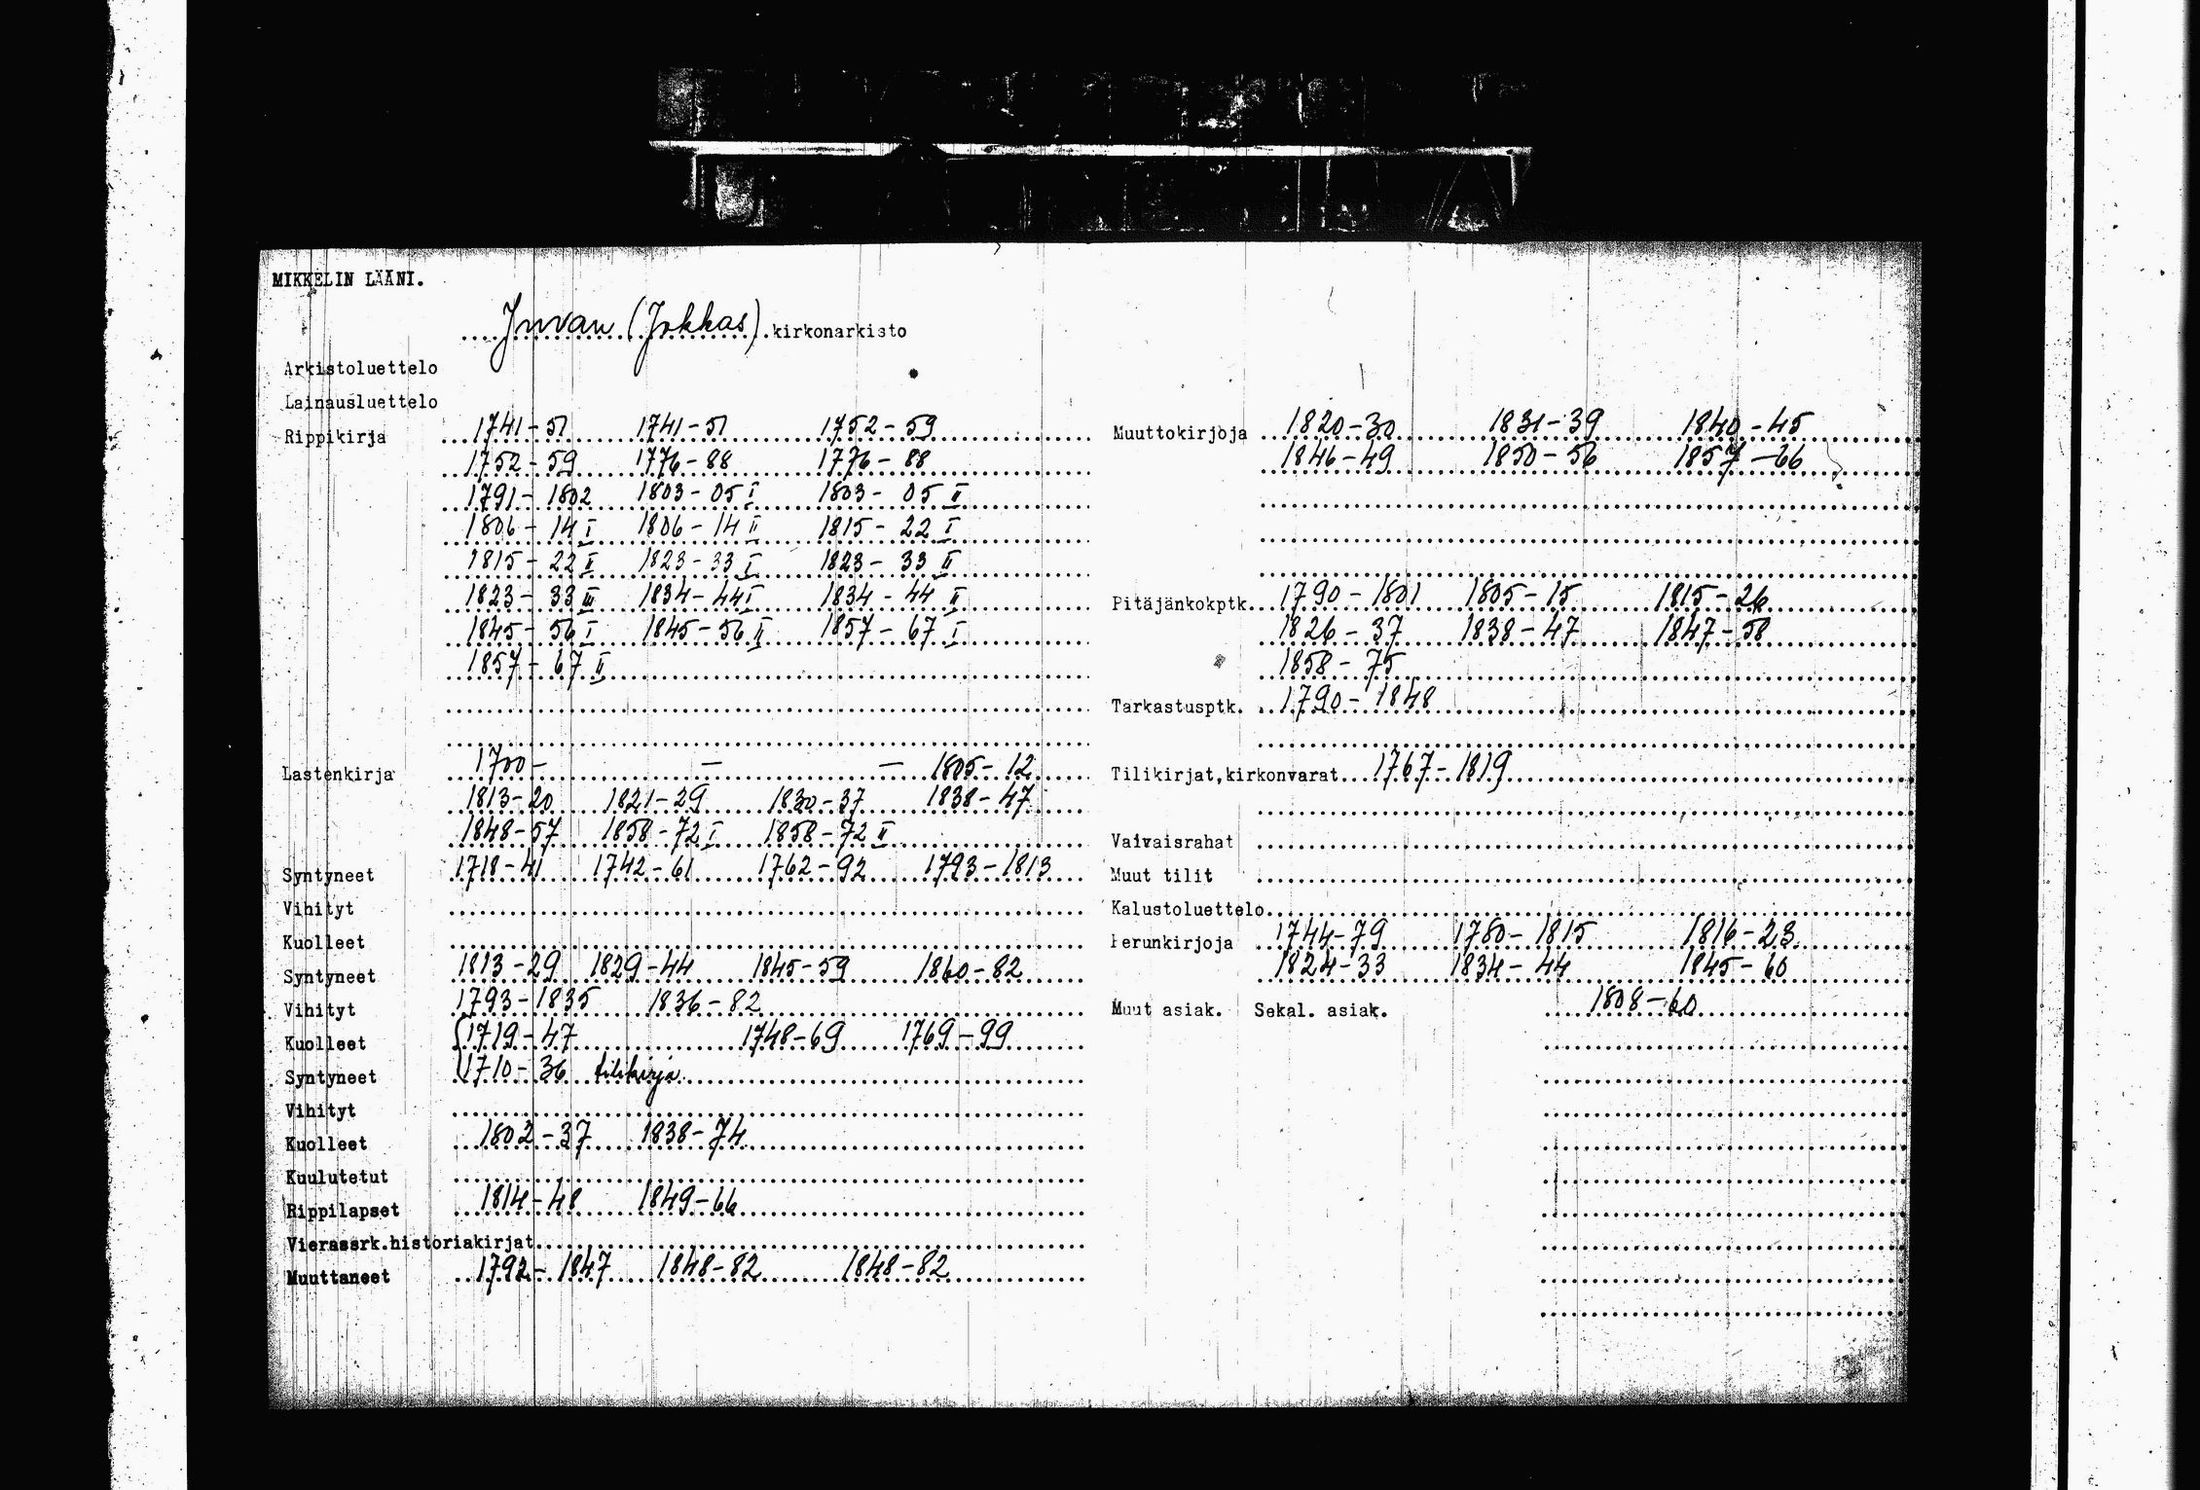 MIKKELIN LÄÄNI.
Juvan (Jokkas) kirkonarkisto
Arkistoluettelo
Lainausluettelo
Rippikirja 1741-51 1741-51 1752-59
1752-59 1776-88 1776-88
1791-1802 1803-05 I 1803-05 II
1806-14 I 1806-14 II 1815-22 I
1815-22 II 1823-33 I 1823-33 II
1823-33 III 1834-44 I 1834-44 II
1845-56 I 1845-56 II 1857-67 I
1857-67 II
Lastenkirja 1700- - - 1805-12
1813-20 1821-29 1830-37 1838-47
1848-57 1858-72 I 1858-72 II
Syntyneet 1718-41 1742-61 1762-92 1793-1813
Vihityt
Kuolleet
Syntyneet 1813-29 1829-44 1845-59 1860-82
Vihityt 1793-1835 1836-82
Kuolleet (1719-47 1748-69 1769-99
Syntyneet (1710-36 tilikirja
Vihityt
Kuolleet 1802-37 1838-74
Kuulutetut
Rippilapset 1814-48 1849-66
Vierassrk.historiakirjat
Muuttaneet 1792-1847 1848-82 1848-82
Muuttokirjoja 1820-30 1831-39 1840-45
1846-49 1850-56 1857-66
Pitäjänkokptk. 1790-1801 1805-15 1815-26
1826-37 1838-47 1847-58
1858-75
Tarkastusptk. 1790-1848
Tilikirjat,kirkonvarat 1767-1819
Vaivaisrahat
Muut tilit
Kalustoluettelo
Perunkirjoja 1744-79 1780-1815 1816-23
1824-33 1834-44 1845-60
Muut asiak. Sekal. asiak. 1808-60